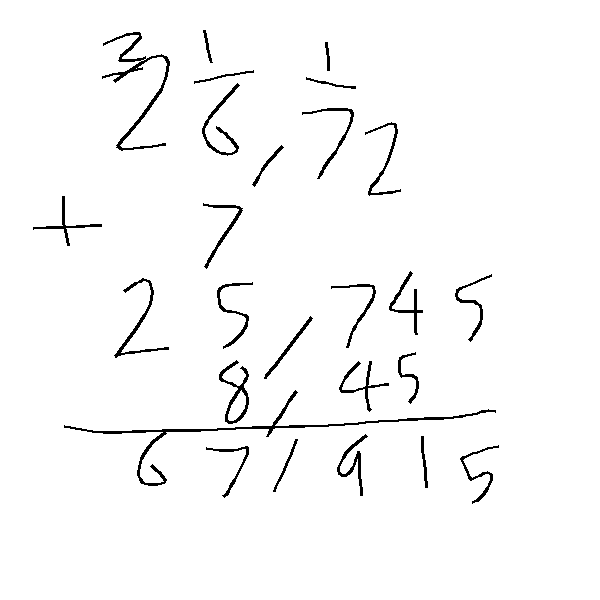 2 1 1
26,72
+ 7
25,745
8,45
67,915